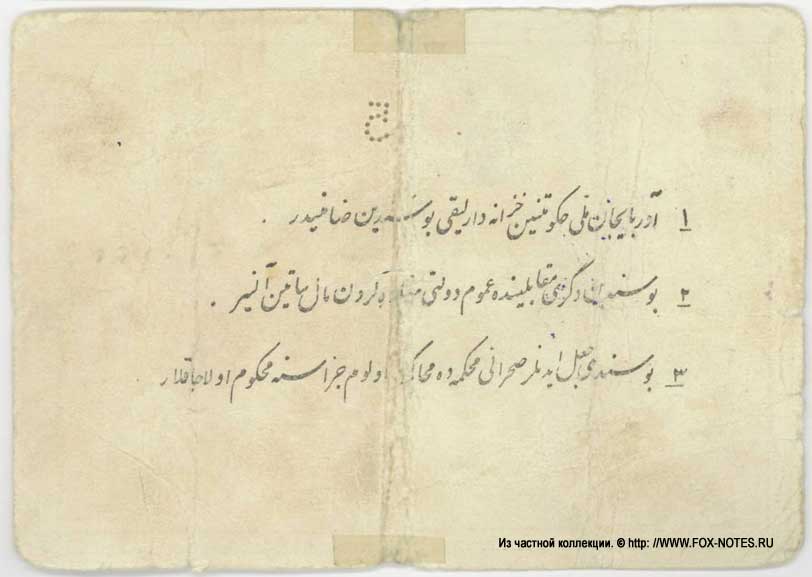 ۱ آذربایجان ملی حکومتینین خزانه دارلیقی بو سندین ضامنیدر .
۲ بو سندین دگری مقابلینده عموم دولتی مال ساتین آلنیر .
۳ بو سندی جعل ایدنلر صحرائی محکمه ده اولوم جزاسنه محکوم اولاجاقلار
Из частной коллекции. © http: //WWW.FOX-NOTES.RU